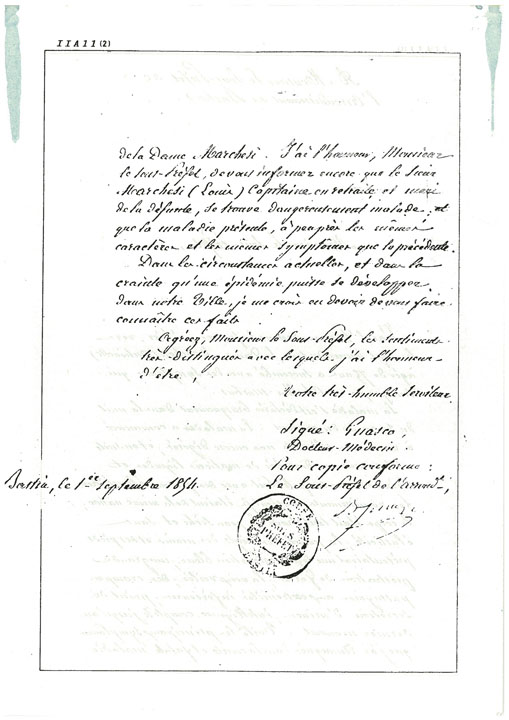 IIA11(2)
de la Dame Marchesi. J'ai l'honneur, Monsieur
le Sous-Préfet, de vous informer encore que le Sieur
Marchesi (Louis) Capitaine en retraite, et mari
de la défunte, se trouve dangereusement malade, et
que la maladie présente, à peu près les mêmes
caractères et les mêmes symptômes que la précédente.
Dans les circonstances actuelles, et dans la
crainte qu'une épidémie puisse se développer
dans notre Ville, je me crois en devoir de vous faire
connaître ces faits.
Agréez, Monsieur le Sous-Préfet, les sentiments
très-distingués avec lesquels j'ai l'honneur
d'être,
Votre très-humble Serviteur.
Signé: Guasco,
Docteur-Médecin.
Pour copie conforme:
Bastia, le 1er Septembre 1854.
Le Sous-Préfet de l'arrondt,
CORSE
SOUS
PRÉFET
BASTIA